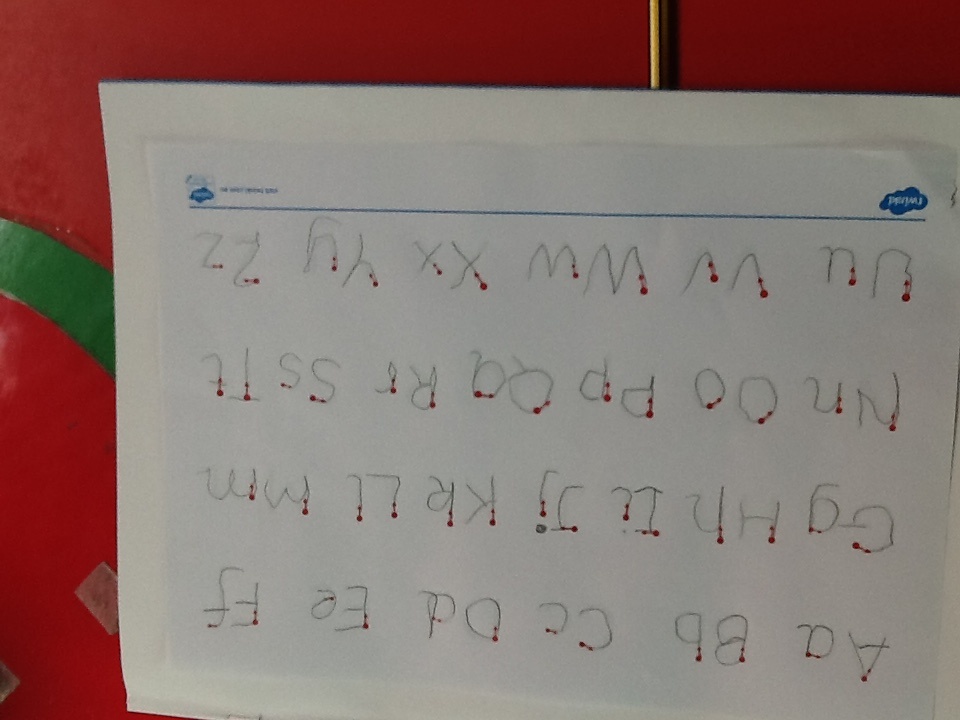 Aa Bb Cc Dd Ee Ff
Gg Hh Ii Jj Kk Ll Mm
Nn Oo Pp Qq Rr Ss Tt
Uu Vv Ww Xx Yy Zz
twinkl